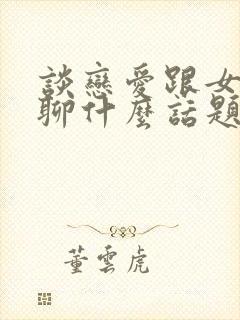 談戀愛跟女
聊什麼話題
董雲虎